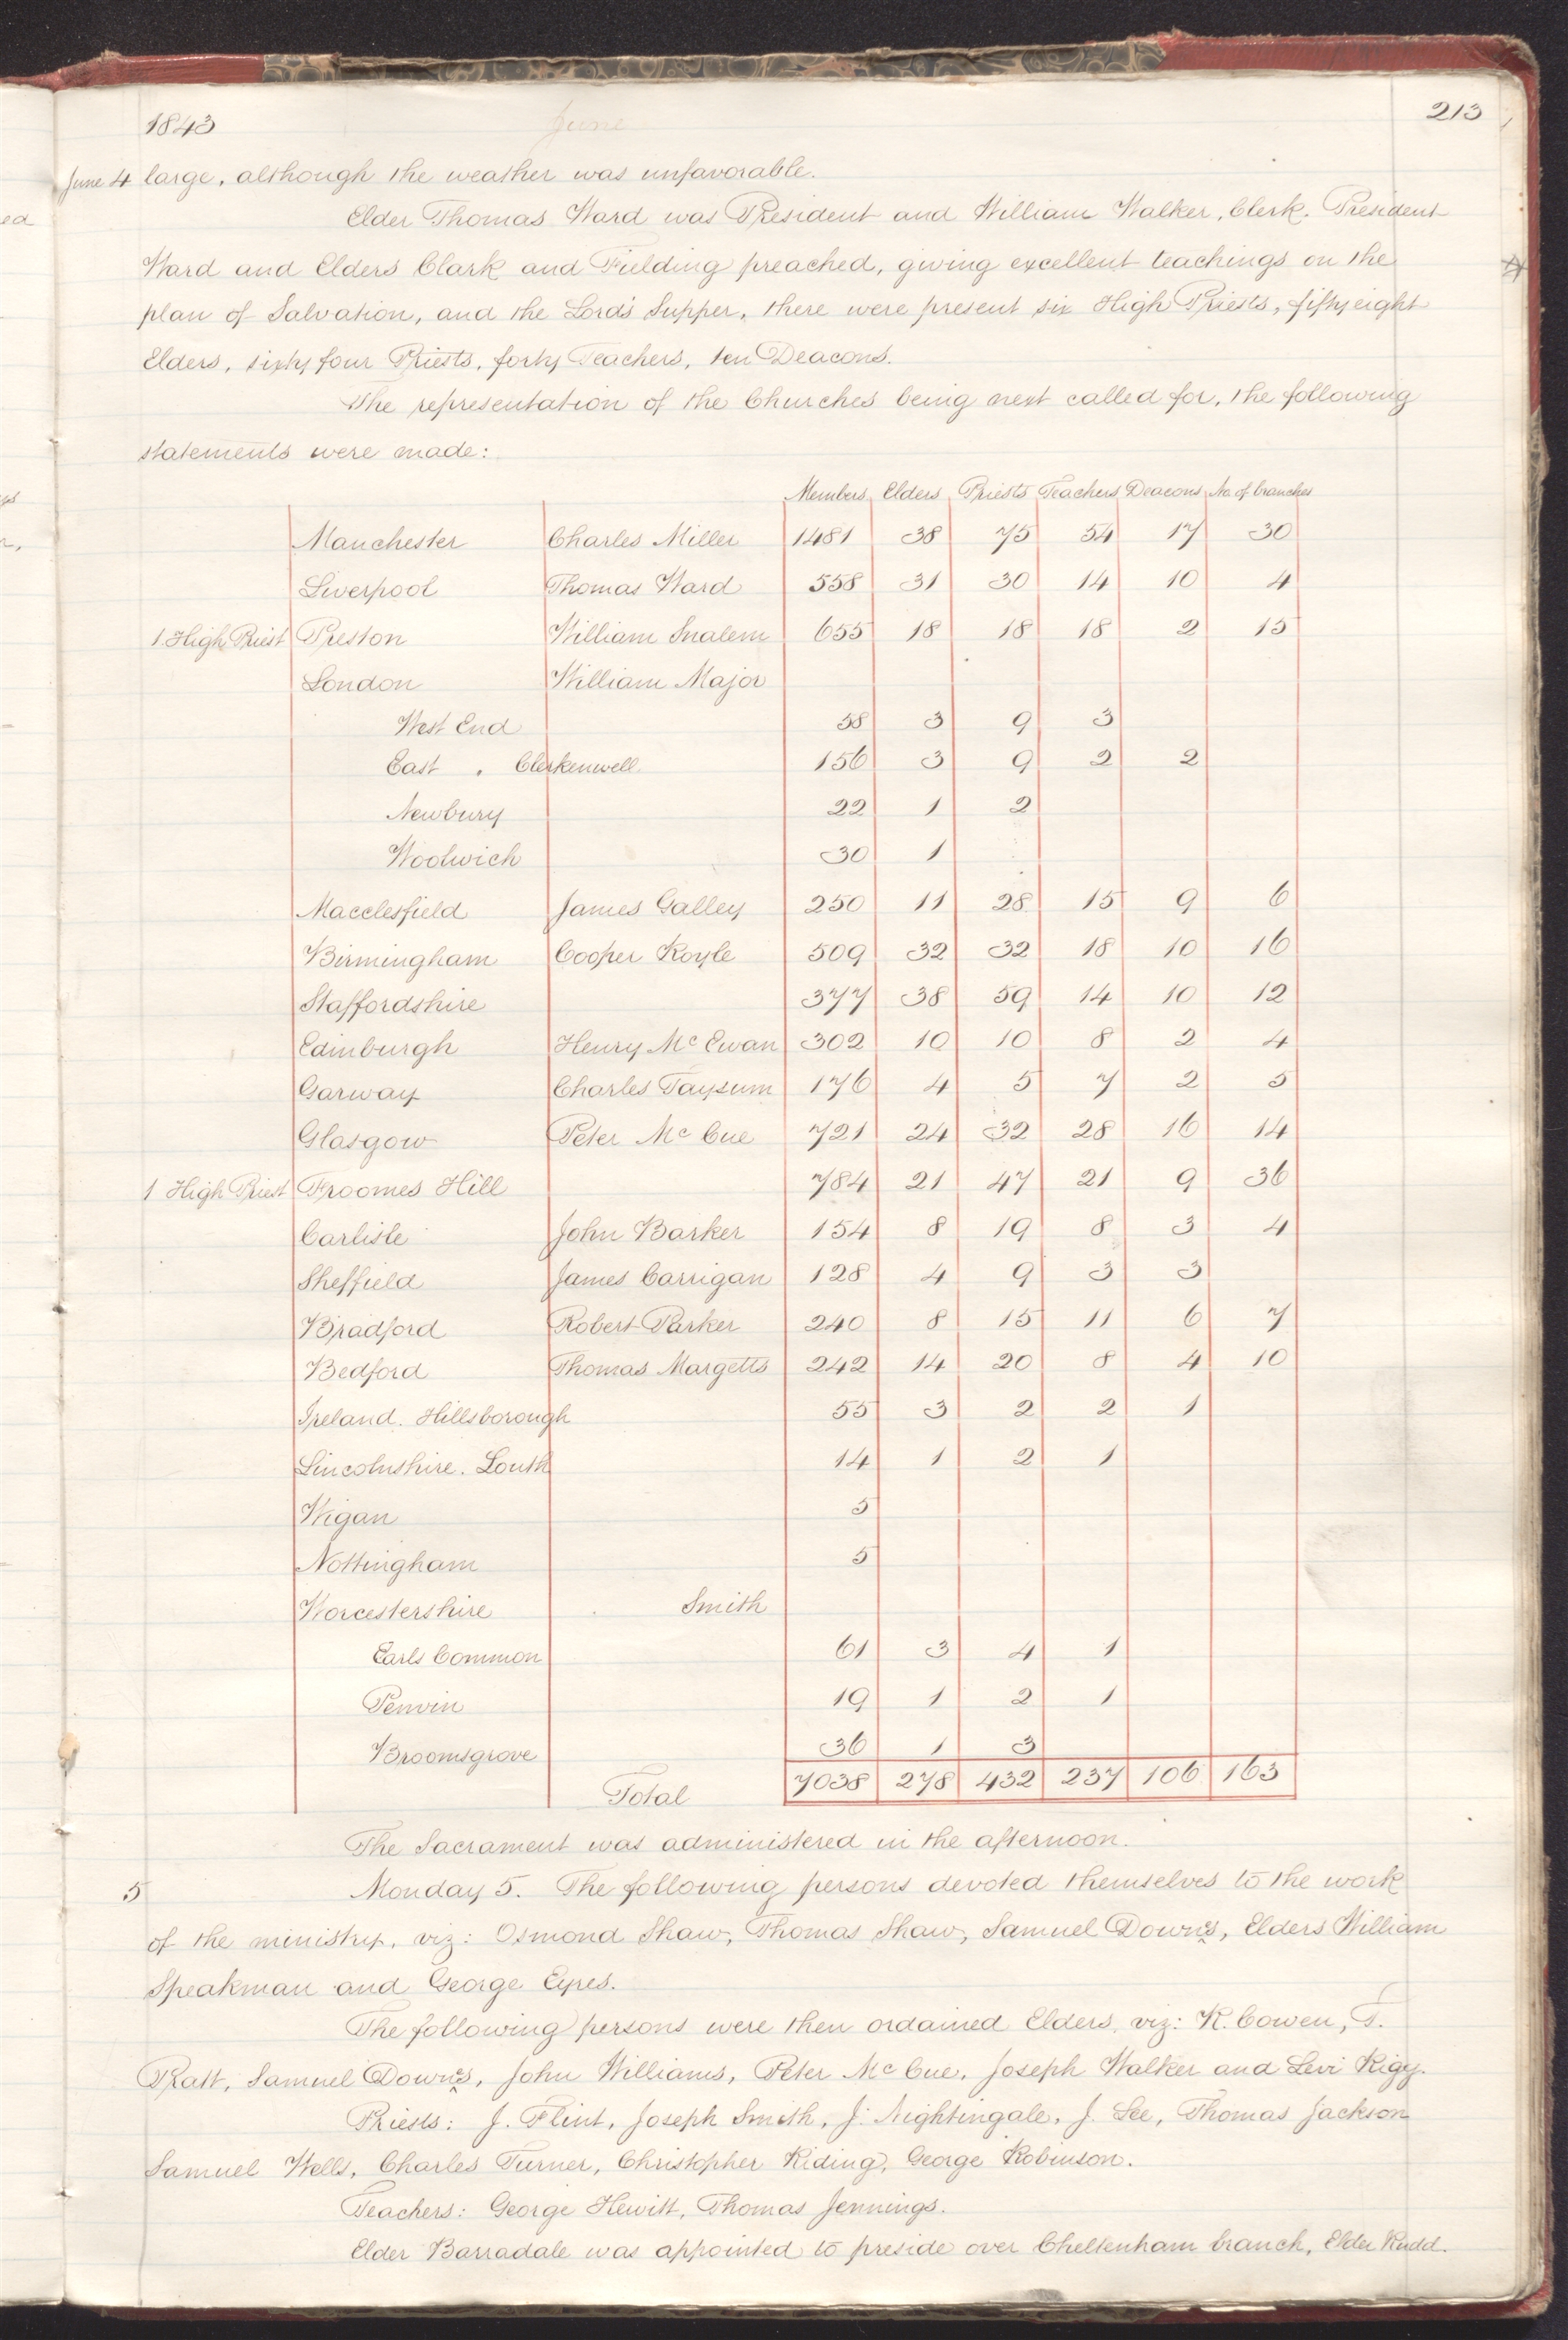 1843 June 213
June 4 large, although the weather was unfavorable.
Elder Thomas Ward was President and William Walker, Clerk. President
Ward and Elders Clark and Fielding preached, giving excellent teachings on the
plan of Salvation, and the Lord's Supper, there were present six High Priests, fifty eight
Elders, sixty four Priests, forty Teachers, ten Deacons.
The representation of the Churches being next called for, the following
statements were made:
Members Elders Priests Teachers Deacons No. of branches
Manchester Charles Miller 1481 38 75 54 17 30
Liverpool Thomas Ward 558 31 30 14 10 4
1 High Priest Preston William Snalem 655 18 18 18 2 15
London William Major
West End 58 3 9 3
East . Clerkenwell. 156 3 9 2 2
Newbury 22 1 2
Woolwich 30 1
Macclesfield James Galley 250 11 28 15 9 6
Birmingham Cooper Royle 509 32 32 18 10 16
Staffordshire 377 38 59 14 10 12
Edinburgh Henry McEwan 302 10 10 8 2 4
Garway Charles Taysum 176 4 5 7 2 5
Glasgow Peter McCue 721 24 32 28 16 14
1 High Priest Froomes Hill 784 21 47 21 9 36
Carlisle John Barker 154 8 19 8 3 4
Sheffield James Carrigan 128 4 9 3 3
Bradford Robert Parker 240 8 15 11 6 7
Bedford Thomas Margetts 242 14 20 8 4 10
Ireland. Hillsborough 55 3 2 2 1
Lincolnshire. Louth 14 1 2 1
Wigan 5
Nottingham 5
Worcestershire Smith
Earls Common 61 3 4 1
Penvin 19 1 2 1
Broomsgrove 36 1 3
Total 7038 278 432 237 106 163
The Sacrament was administered in the afternoon.
5 Monday 5. The following persons devoted themselves to the work
of the ministry, viz: Osmond Shaw, Thomas Shaw, Samuel Downs, Elders William
Speakman and George Eyres.
The following persons were then ordained Elders, viz: R. Cowen, T.
Pratt, Samuel Downs, John Williams, Peter McCue, Joseph Walker and Levi Rigy.
Priests: J. Flint, Joseph Smith, J. Nightingale, J. Lee, Thomas Jackson
Samuel Wells, Charles Turner, Christopher Riding, George Robinson.
Teachers: George Hewitt, Thomas Jennings.
Elder Barradale was appointed to preside over Cheltenham branch, Elder Rudd.